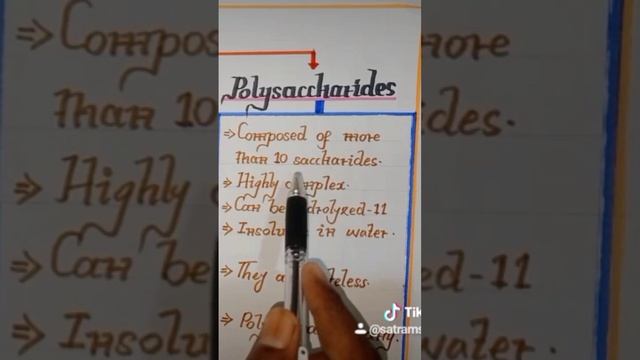 Polysaccharides
⇒ Composed of more
than 10 saccharides.
⇒ Highly complex.
⇒ Can be hydrolyzed-11
⇒ Insoluble in water.
⇒ They are
⇒
TikTok
@satrams